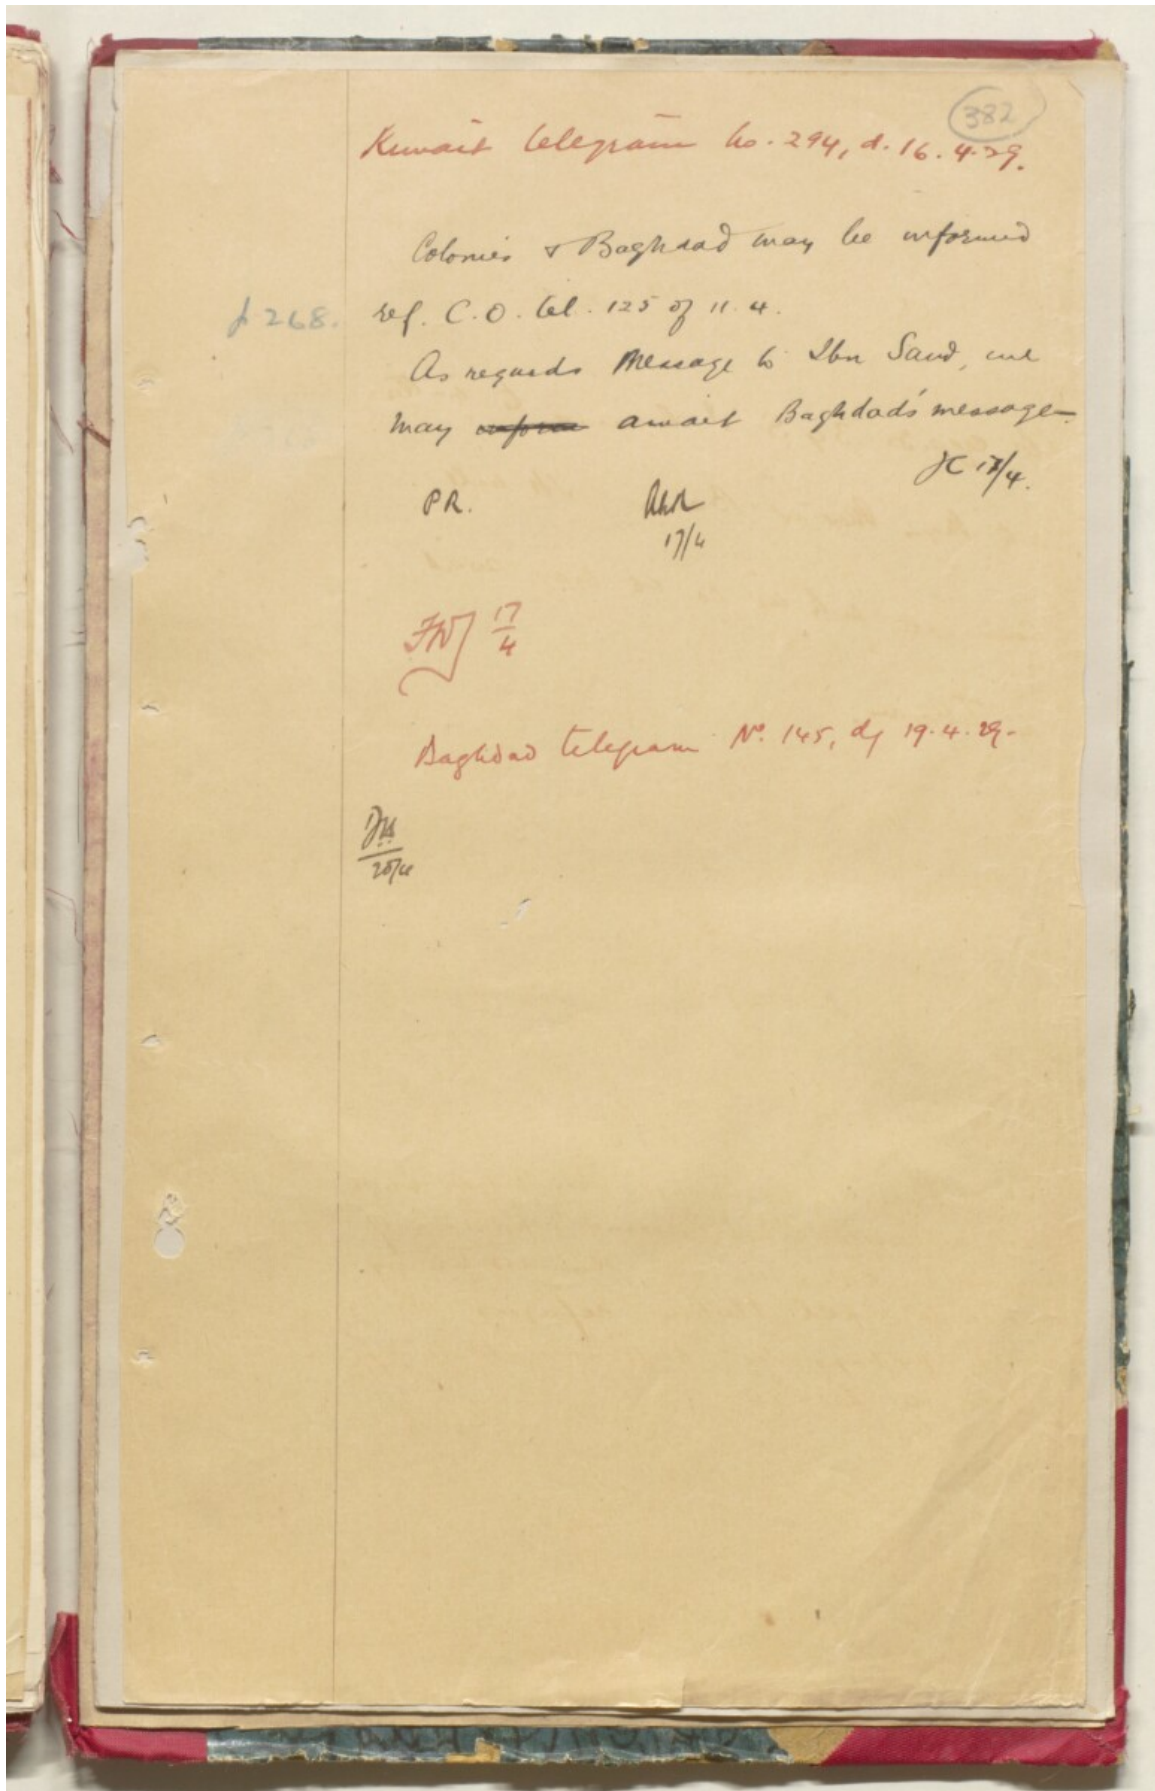 382
Kuwait telegram No. 294, d. 16.4.29.
Colonies & Baghdad may be informed
p 268. ref. C.O. tel. 125 of 11.4.
As regards message to Ibn Saud, we
may inform await Baghdad's message.
JC 17/4.
P.R.
17/4
17/4
Baghdad telegram No. 145, d/ 19.4.29.
20/4